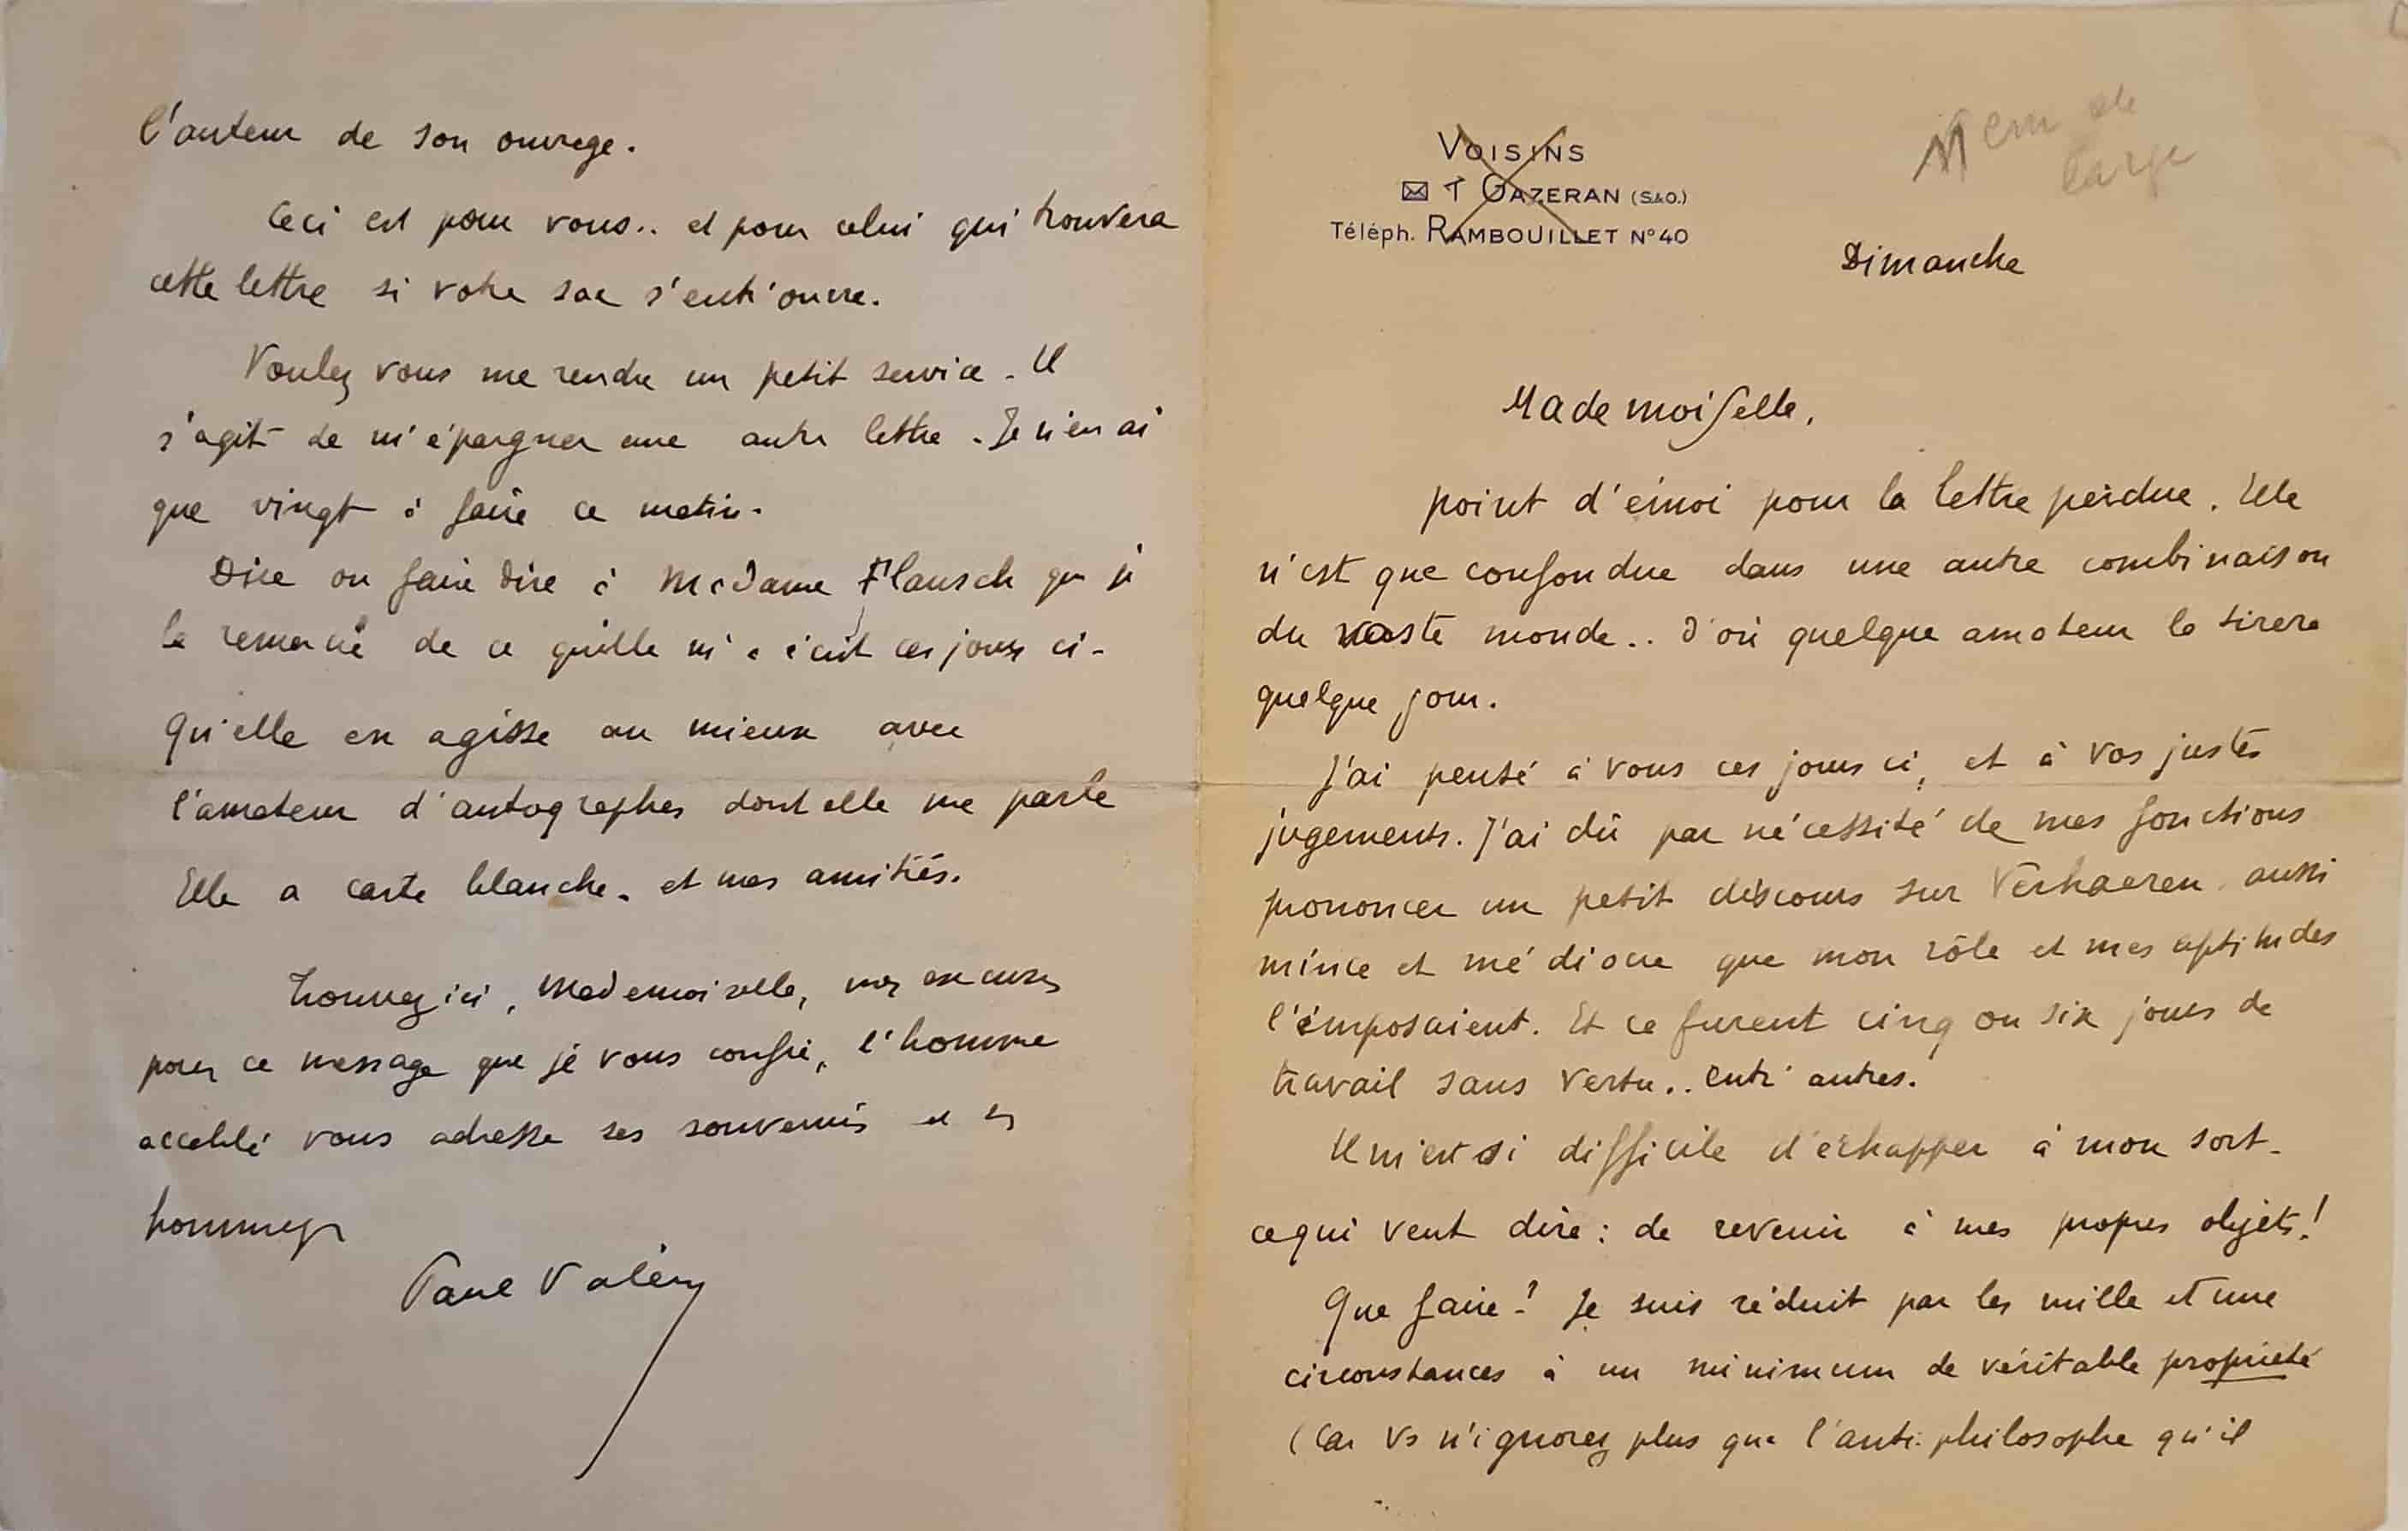 VOISINS
T GAZERAN (S.&O.)
Téléph. RAMBOUILLET N° 40
cm de
large
Dimanche
Mademoiselle,
point d'émoi pour la lettre perdue. Elle
n'est que confondue dans une autre combinaison
du vaste monde.. d'où quelque amateur la tirera
quelque jour.
J'ai pensé à vous ces jours ci, et à vos justes
jugements. J'ai dû par nécessité de mes fonctions
prononcer un petit discours sur Verhaeren, aussi
mince et médiocre que mon rôle et mes aptitudes
l'imposaient. Et ce furent cinq ou six jours de
travail sans vertu.. entr'autres.
Il m'est si difficile d'échapper à mon sort -
ce qui veut dire : de revenir à mes propres objets !
Que faire ? Je suis réduit par les mille et une
circonstances à un minimum de véritable propriété
(Car vs n'ignorez plus que l'anti-philosophe qu'il
l'auteur de son ouvrage.
Ceci est pour vous.. et pour celui qui trouvera
cette lettre si votre sac s'entr'ouvre.
Voulez vous me rendre un petit service - Il
s'agit de m'épargner une autre lettre - Je n'en ai
que vingt à faire ce matin -
Dire ou faire dire à Madame Flausch que je
la remercie de ce qu'elle m'a écrit ces jours ci -
Qu'elle en agisse au mieux avec
l'amateur d'autographes dont elle me parle
Elle a carte blanche - et mes amitiés.
Trouvez ici, Mademoiselle, mes excuses
pour ce message que je vous confie, l'homme
accablé vous adresse ses souvenirs et ses
hommages
Paul Valéry